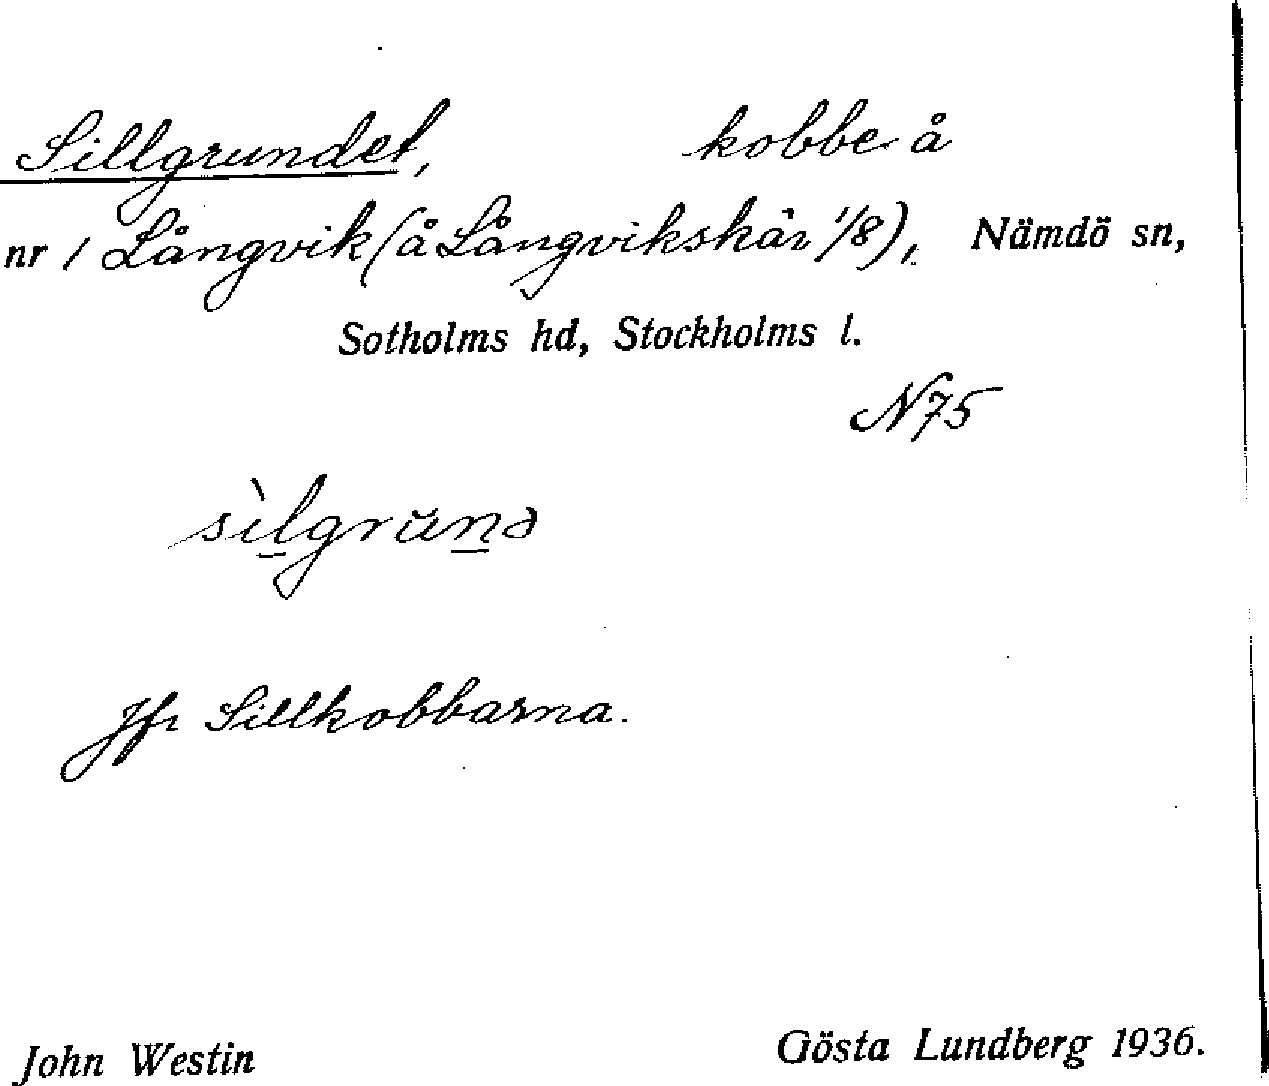 Sillgrundet, kobbe å
nr 1 Långvik (å Långvikskär 1/8), Nämdö sn,
Sotholms hd, Stockholms l.
N75
sìl̲grŭn̲ə
Jfr Sillkobbarna.
John Westin Gösta Lundberg 1936.